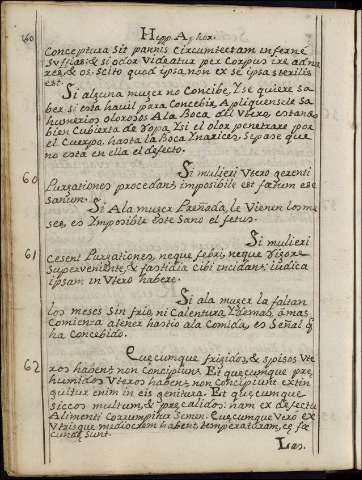 160
Hipp. Aphor.
Conceptura Sit pannis Circumtectam inferne
Suffias: & si odor Videatur per Corpus ire ad na
res, & os, scito quod ipsa, non ex se ipsa sterilis
est.
Si alguna muger no Concibe, Y se quiere sa
ber, si esta havil para Concebir, Apliquensele Sa
humerios olorosos A la Boca del Vtero, estando
bien Cubierta de ropa, Y si el olor penetrare por
el Cuerpo, hasta la Boca Y narices, Sepase que
no esta en ella el defecto.
60
Si mulieri Vtero gerenti
Purgationes procedant, imposibile est fœtum ese
Sanum.
Si A la muger Preñada, le Vienen los me
ses, es Ymposible este Sano el fetus.
61
Si mulieri
Cesent Purgationes, neque febri, neque rigore
Superveniente, & fastidia Cibi incidant; iudica
ipsam in Vtero habere.
Si a la muger la faltan
los meses Sin frio, ni Calentura, Y demas, â mas
Comienza a tener hastio a la Comida, es Señal q̃
ha Concebido.
62
Quecumque frigidos, & spisos Vte
ros habent, non Concipiunt. Et quecumque pre
humidos Vteros habent, non Concipiunt extin
guitur enim in eis genitura. Et quecumque
siccos multum, & precalidos: nam ex defectu
Alimenti Corrumpitur Semen. Quecumque Vero ex
Vtrisque mediocrem habent, temperaturam, ee fæ
cundæ Sunt.
Las